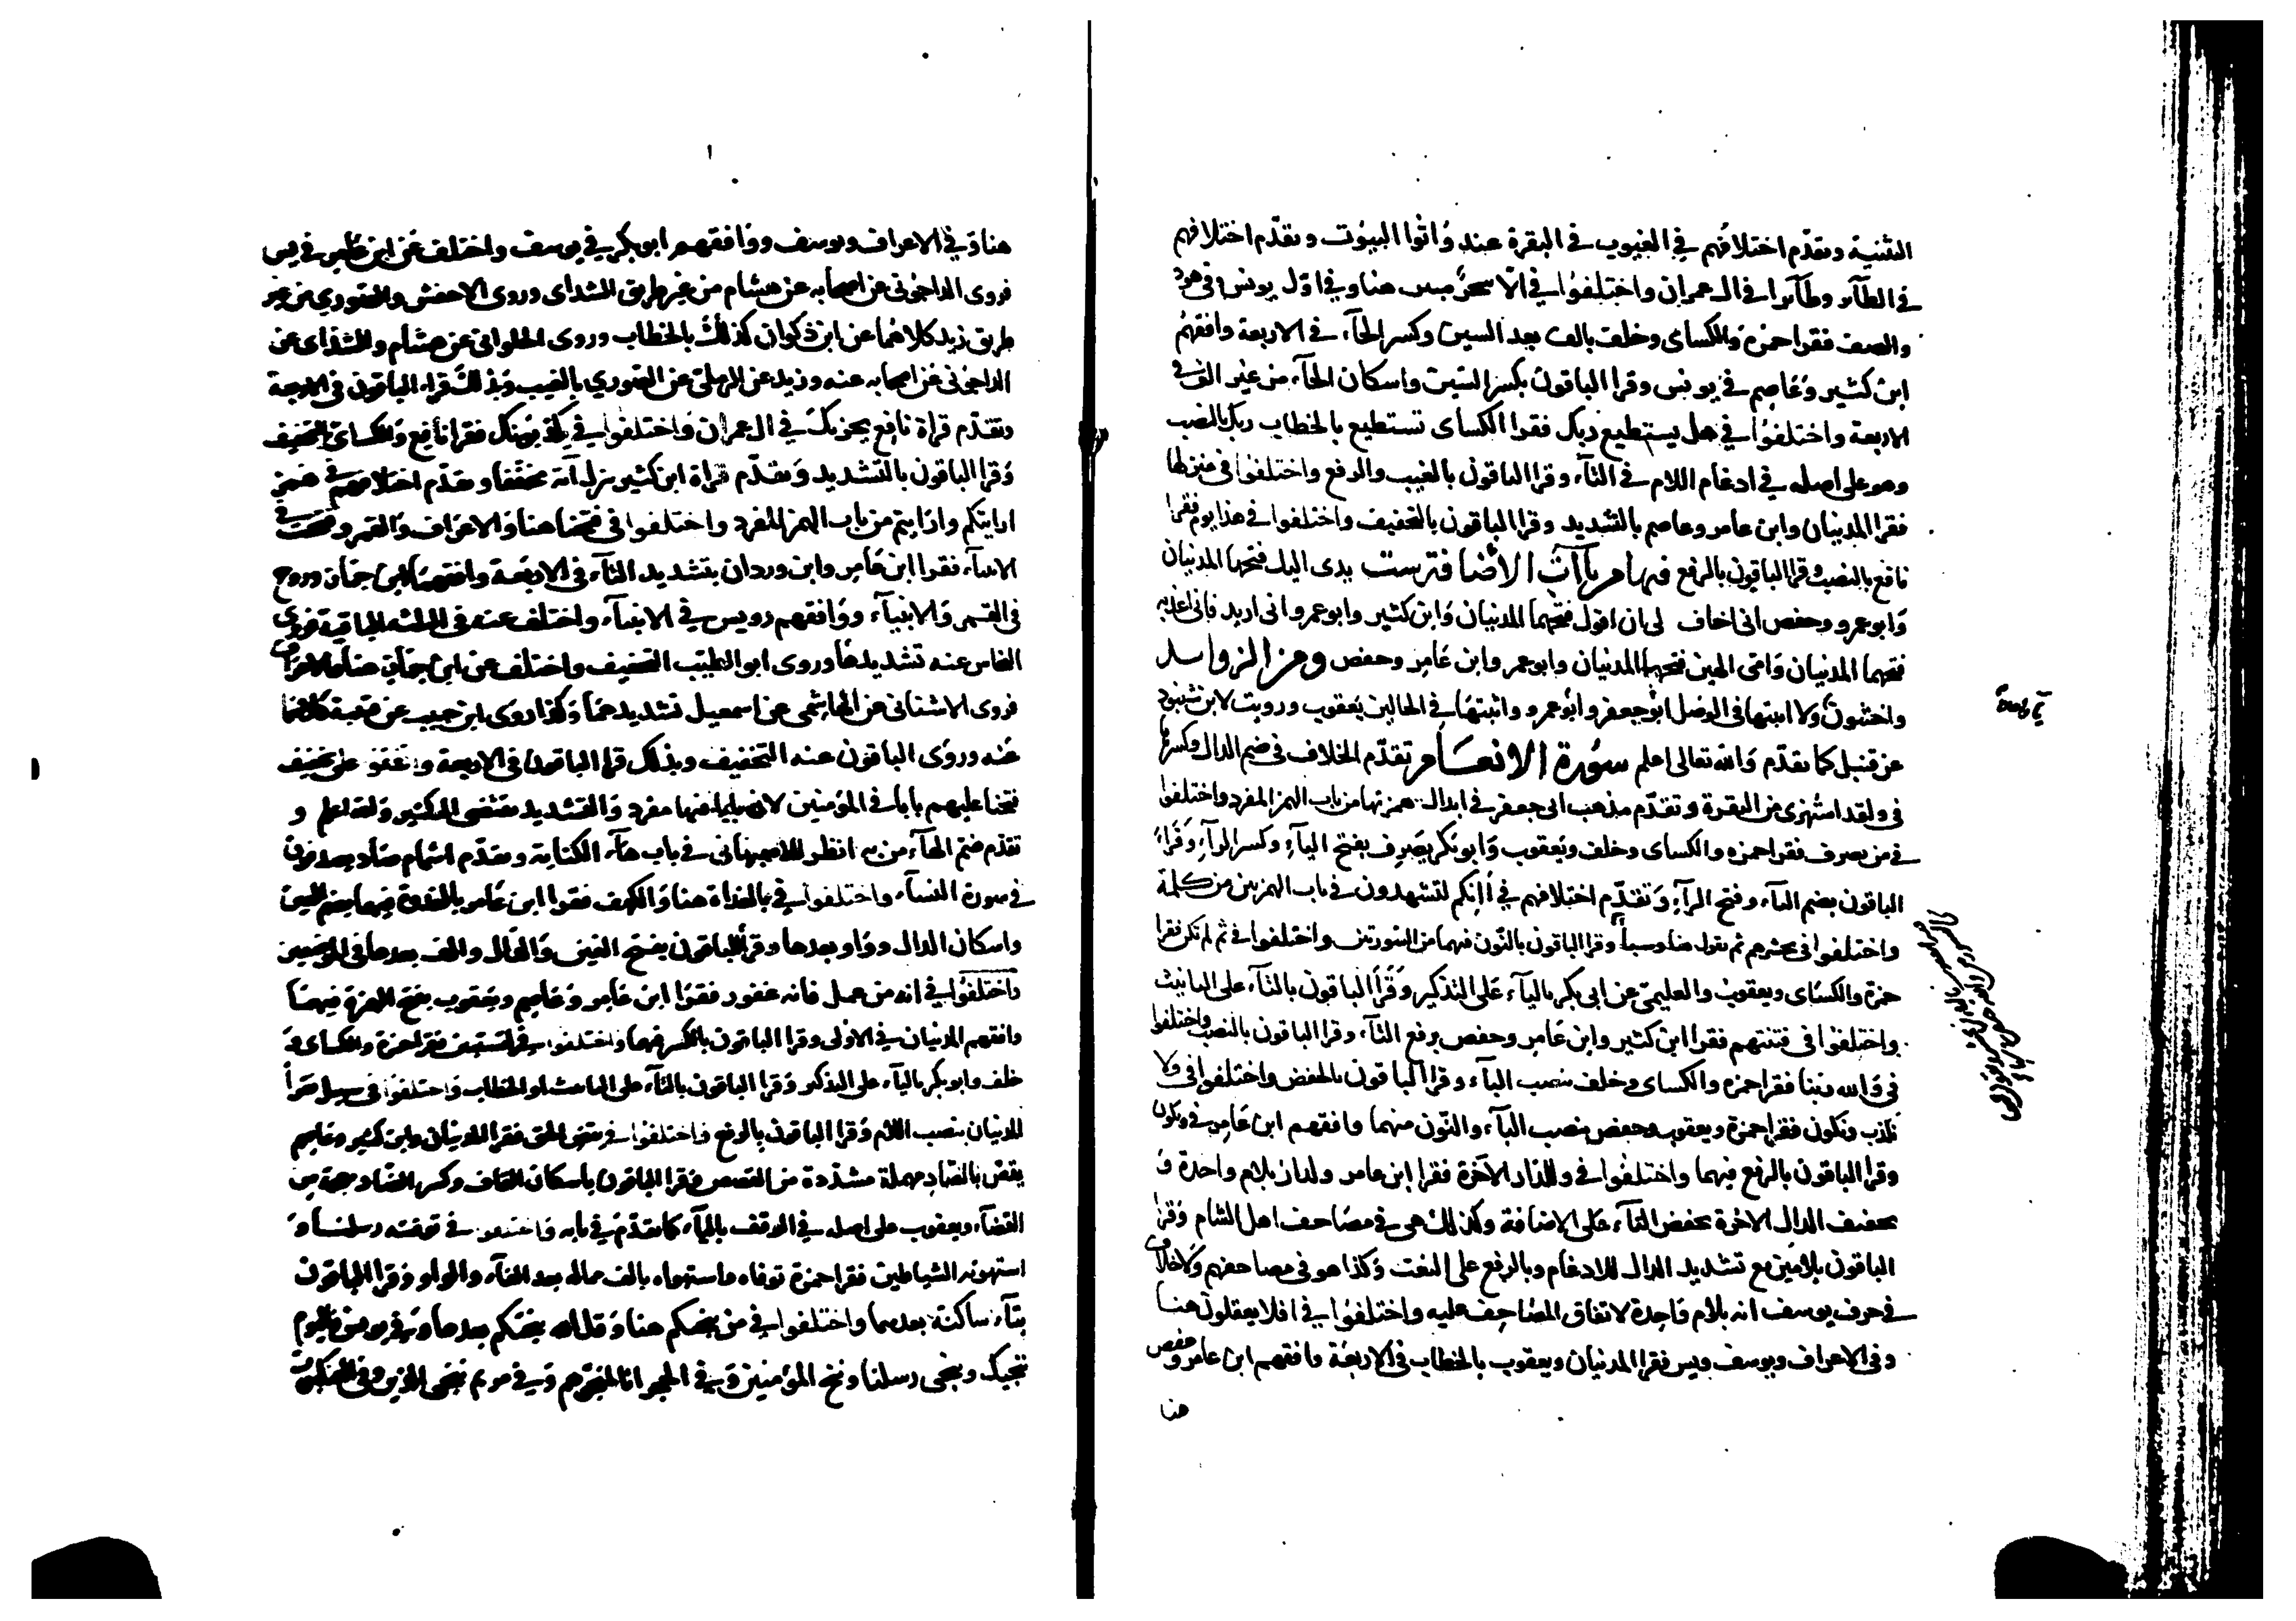 التثنية وتقدّم اختلافهم في الغيوب في البقرة عند وأتوا البيوت وتقدّم اختلافهم
في الطائر وطائرا في ال عمران واختلفوا في الا سحر مبين هنا وفي اوّل يونس وفي هود
والصف فقرا حمزة والكساى وخلف بالف بعد السين وكسر الحآء في الاربعة وافقهم
ابن كثير وعاصم في يونس وقرا الباقون بكسر السين واسكان الحآء من غير الف في
الاربعة واختلفوا في هل يستطيع ربك فقرا الكساى تستطيع بالخطاب ربك بالنصب
وهو على اصله في ادغام اللام في التآء وقرا الباقون بالغيب والرفع واختلفوا في منزلها
فقرا المدنيان وابن عامر وعاصم بالتشديد وقرا الباقون بالتخفيف واختلفوا في هذا يوم فقرا
نافع بالنصب وقرا الباقون بالرفع فيها من ياآت الاضافة ست يدى اليك فتحها المدنيان
وابو عمرو وحفص انى اخاف لى ان اقول فتحهما المدنيان وابن كثير وابو عمرو انى اريد فانى اعذبه
فتحهما المدنيان وامى الهين فتحها المدنيان وابو عمر وابن عامر وحفص ومن الزوايد
ياء واحدة
واخشون ولا اثبتها في الوصل ابو جعفر وابو عمرو واثبتها في الحالين يعقوب ورويت لابن شنبوذ
عن قنبل كما تقدّم والله تعالى اعلم سورة الانعام تقدّم الخلاف في ضم الدال وكسرها
في ولقد استهزى من البقرة وتقدّم مذهب ابى جعفر في ابدال همزتها من باب الهمز المفرد واختلفوا
في من يصرف فقرا حمزه والكساى وخلف ويعقوب وابو بكر يصرف بفتح اليآء وكسر الرآء وقرا
الباقون بضم اليآء وفتح الرآء وتقدّم اختلافهم في أانكم لتشهدون في باب الهمزتين من كلمة
واختلفوا في يحشرهم ثم يقول هنا وسبأ وقرا الباقون بالنّون فيهما من السورتين واختلفوا في ثم لم تكن فقرا
حمزة والكساى ويعقوب والعليمى عن ابى بكر باليآء على التذكير وقرا الباقون بالتآء على التانيث
واختلفوا في فتنتهم فقرا ابن كثير وابن عامر وحفص برفع التآء وقرا الباقون بالنصب واختلفوا
في والله ربنا فقرا حمزه والكساى وخلف بنصب البآء وقرا الباقون بالخفض واختلفوا في ولا
نكذب ونكون فقرا حمزة ويعقوب وحفص بنصب البآء والنّون منهما وافقهم ابن عامر في ونكون
وقرا الباقون بالرفع فيهما واختلفوا في وللدار الآخرة فقرا ابن عامر ولدار بلام واحدة و
تخفيف الدال الاخرة بخفض التآء على الاضافة وكذلك هى في مصاحف اهل الشام وقرا
الباقون بلامين مع تشديد الدال للادغام وبالرفع على النعت وكذا هو في مصاحفهم ولا خلاف
في حرف يوسف انه بلام واحدة لاتفاق المصاحف عليه واختلفوا في افلا يعقلون هنا
وفي الاعراف ويوسف ويس فقرا المدنيان ويعقوب بالخطاب في الاربعة وافقهم ابن عامر وحفص
هنا
هنا وفي الاعراف ويوسف ووافقهم ابو بكر في يوسف واختلف عن ابن عامر في يس
فروى الداجونى عن اصحابه عن هشام من غير طريق الشذاى وروى الاخفش والصورى من غير
طريق زيد كلاهما عن ابن ذكوان كذلك بالخطاب وروى الحلوانى عن هشام والشذاى عن
الداجونى عن اصحابه عنه وزيد عن الرملى عن الصورى بالغيب وبذلك قراء الباقون في الاربعة
وتقدّم قراة نافع يحزنك في ال عمران واختلفوا في يكذبونك فقرا نافع والكساى بالتخفيف
وقرا الباقون بالتشديد وتقدّم قراة ابن كثير ينزل آية مخففا وتقدّم اختلافهم في همز
ارايتكم وارايتم من باب الهمز المفرد واختلفوا في فتحنا هنا والاعراف والقمر وفتحت في
الانبيآء فقرا ابن عامر وابن وردان بتشديد التآء في الاربعة وافقهما ابن جماز وروح
في القمر والانبيآء ووافقهم رويس في الانبيآء واختلف عنه في الثلثه الباقية فروى
النخاس عنه تشديدها وروى ابو الطيّب التخفيف واختلف عن ابن جماز هنا والاعراف
فروى الاشنانى عن الهاشمى عن اسمعيل تشديدهما وكذا روى ابن حبيب عن قتيبة كلاهما
عنه وروى الباقون عنه التخفيف وبذلك قرا الباقون في الاربعة واتفقوا على تخفيف
فتحنا عليهم بابا في المؤمنين لان بابا فيها مفرد والتشديد يقتضى التكثير والله اعلم و
تقدّم ضم الهآء من به انظر للاصبهانى في باب هآء الكناية وتقدّم اشمام صاد يصدفون
في سورة النسآء واختلفوا في بالغداة هنا والكهف فقرا ابن عامر بالغدوة فيهما بضم الغين
واسكان الدال وواو بعدها وقرا الباقون بفتح الغين والدال والف بعدها في الموضعين
واختلفوا في انه من عمل فانه غفور فقرا ابن عامر وعاصم ويعقوب بفتح الهمزة فيهما
وافقهم المدنيان في الاولى وقرا الباقون بالكسر فيهما واختلفوا في ولتستبين فقرا حمزة والكساى و
خلف وابو بكر باليآء على التذكير وقرا الباقون بالتآء على التانيث او الخطاب واختلفوا في سبيل فقرأ
المدنيان بنصب اللام وقرا الباقون بالرفع واختلفوا في يقص الحق فقرا المدنيان وابن كثير وعاصم
يقص بالصاد مهملة مشدّدة من القصص وقرا الباقون باسكان القاف وكسر الضاد معجمة من
القضآء ويعقوب على اصله في الوقف باليآء كما تقدّم في بابه واختلفوا في توفته رسلنا و
استهوته الشياطين فقرا حمزة توفاه واستهواه بالف مماله بعد الفآء والواو وقرا الباقون
بتآء ساكنة بعدهما واختلفوا في من ينجيكم هنا وقل الله ينجيكم بعدها وفي يونس فاليوم
ننجيك وننجى رسلنا وننج المؤمنين وفي الحجر انا لمنجوهم وفي مريم ننجى الذين وفي العنكبوت